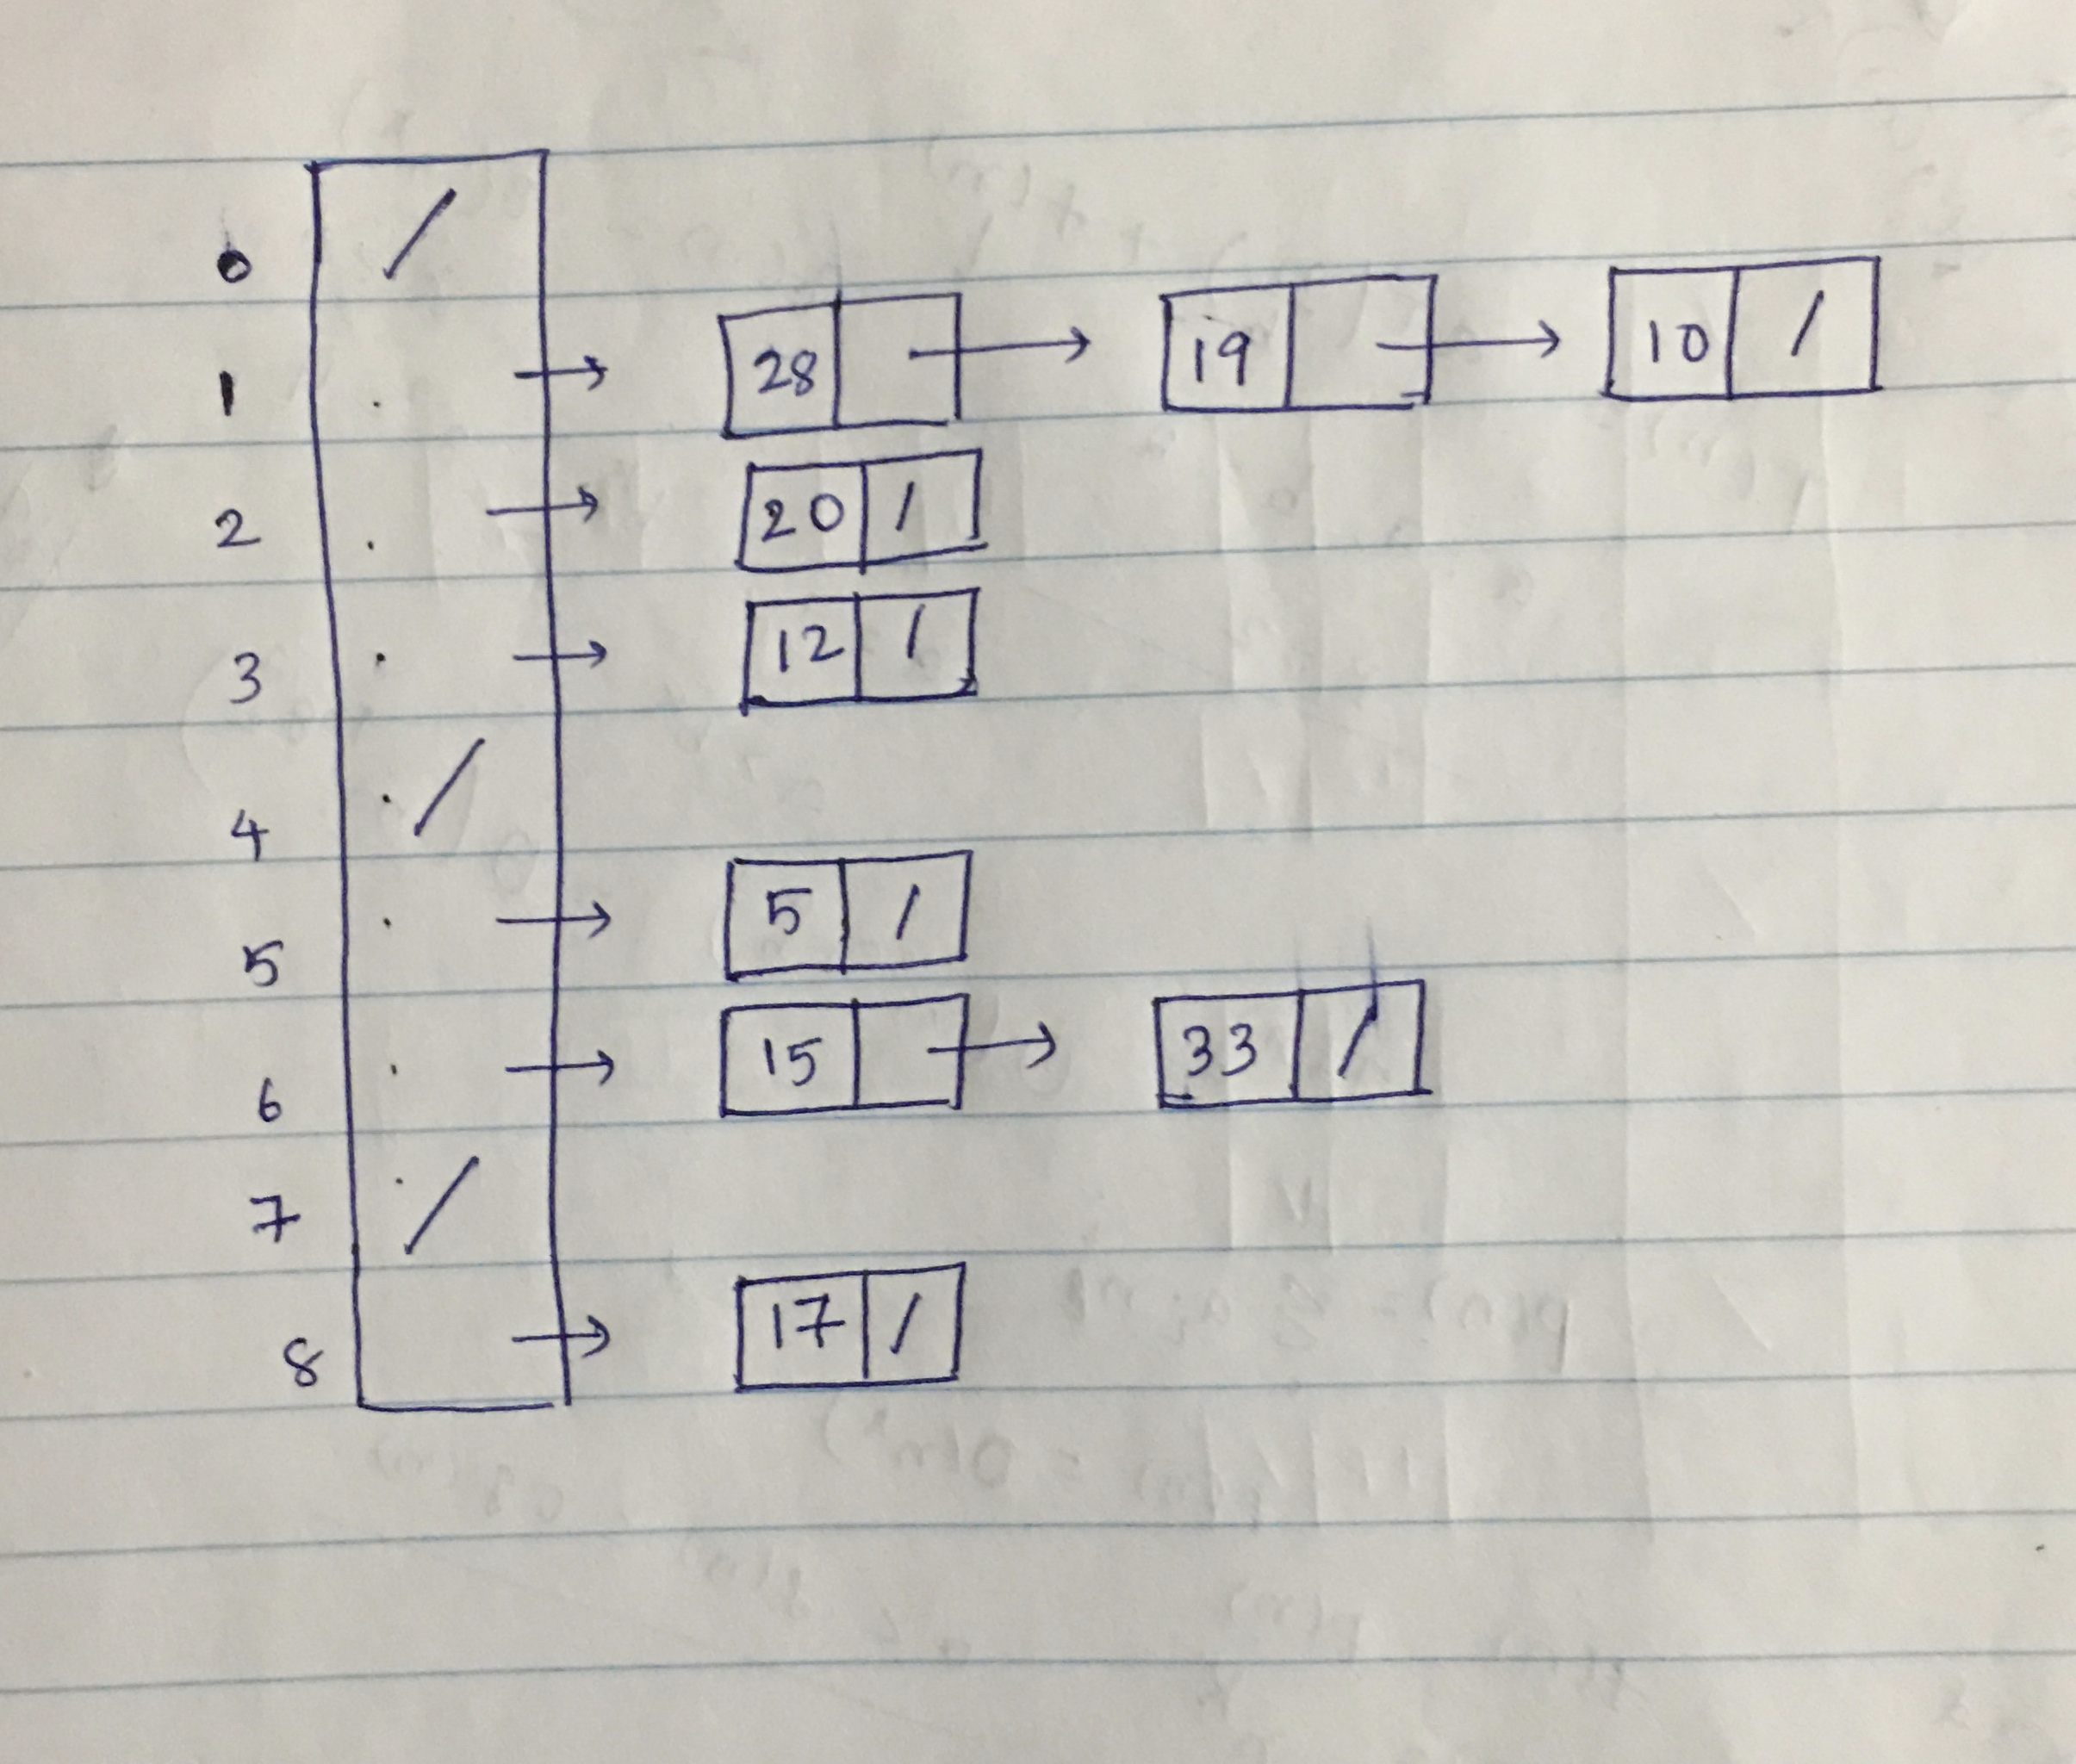 0 /
1 28 19 10 /
2 20 /
3 12 /
4 /
5 5 /
6 15 33 /
7 /
8 17 /